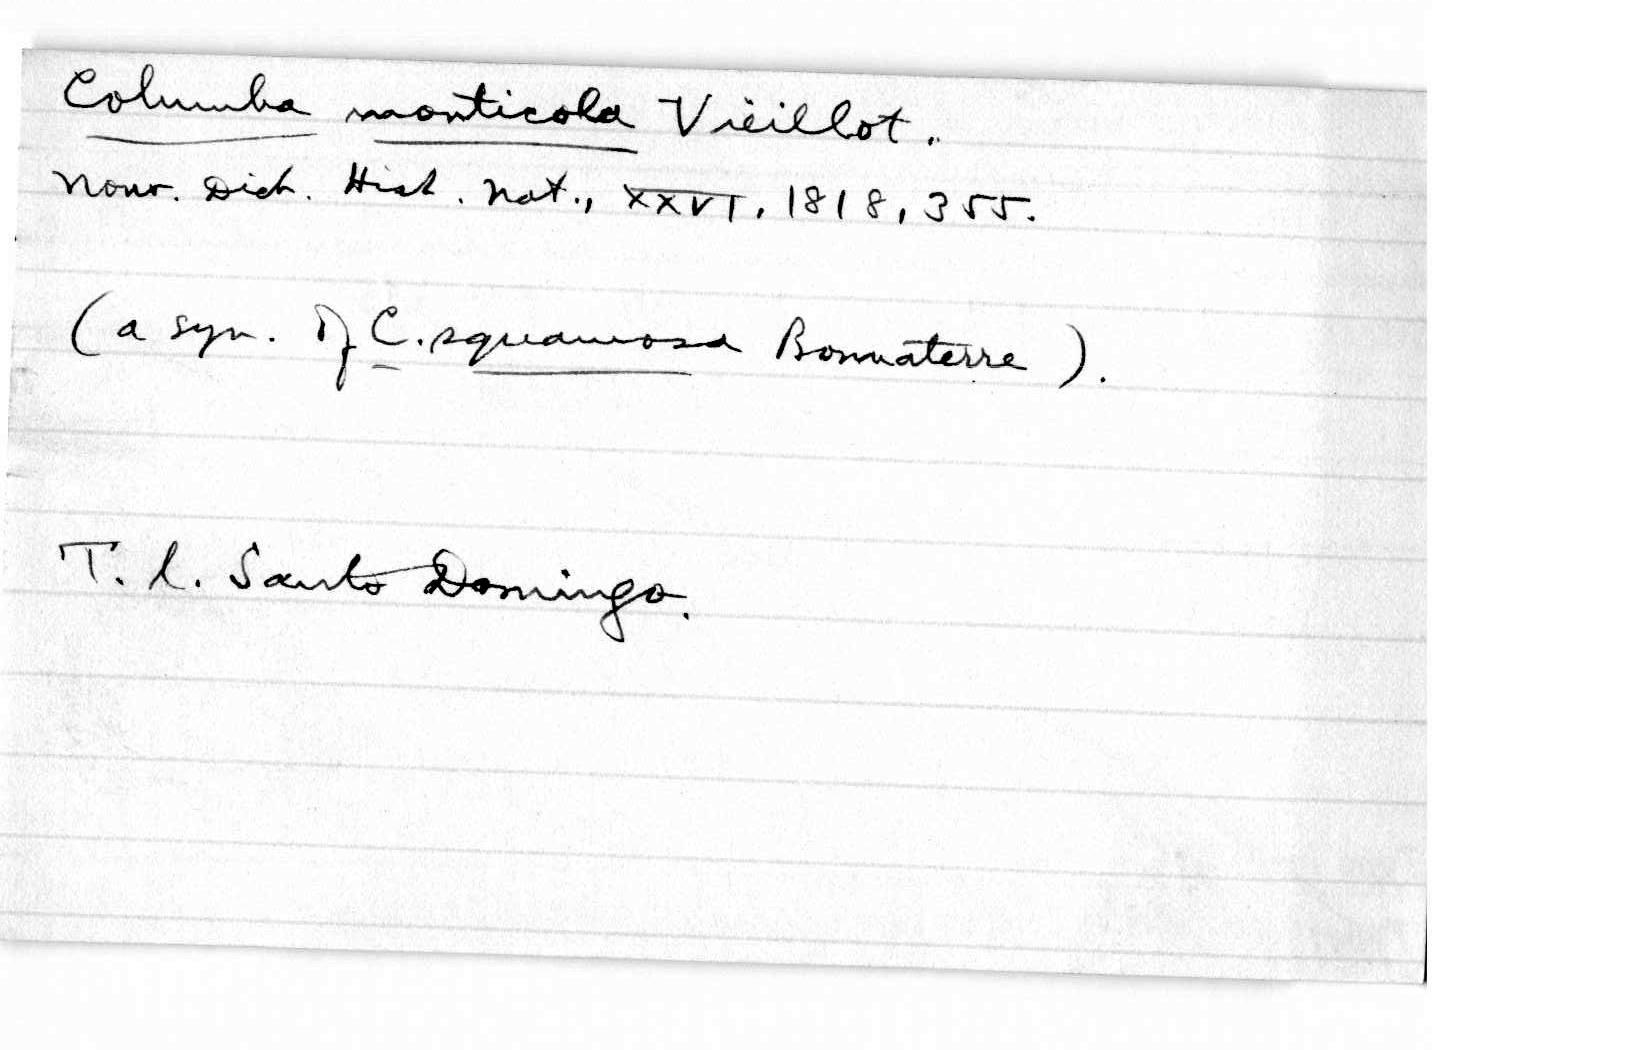 Columba monticola Vieillot.
Nouv. Dict. Hist. Nat., XXVI, 1818, 355.
(a syn. of C. squamosa Bonnaterre).
T. l. Santo Domingo.